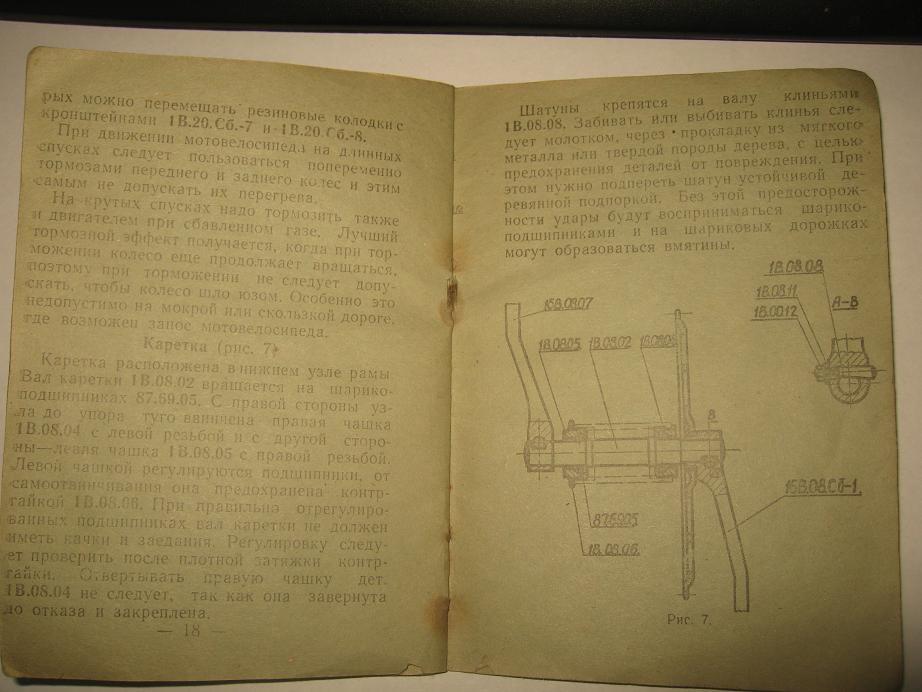 рых можно перемещать резиновые колодки с
кронштейнами 1В.20.Сб.-7 и 1В.20.Сб.-8.
При движении мотовелосипеда на длинных
спусках следует пользоваться попеременно
тормозами переднего и заднего колес и этим
самым не допускать их перегрева.
На крутых спусках надо тормозить также
и двигателем при сбавленном газе. Лучший
тормозной эффект получается, когда при тор-
можении колесо еще продолжает вращаться,
поэтому при торможении не следует допу-
скать, чтобы колесо шло юзом. Особенно это
недопустимо на мокрой или скользкой дороге,
где возможен занос мотовелосипеда.
Каретка (рис. 7)
Каретка расположена в нижнем узле рамы
Вал каретки 1В.08.02 вращается на шарико-
подшипниках 87.69.05. С правой стороны уз-
ла до упора туго ввинчена правая чашка
1В.08.04 с левой резьбой и с другой сторо-
ны—левая чашка 1В.08.05 с правой резьбой.
Левой чашкой регулируются подшипники, от
самоотвинчивания она предохранена контр-
гайкой 1В.08.06. При правильно отрегулиро-
ванных подшипниках вал каретки не должен
иметь качки и заедания. Регулировку следу-
ет проверить после плотной затяжки контр-
гайки. Отвертывать правую чашку дет.
1В.08.04 не следует, так как она завернута
до отказа и закреплена.
— 18 —
Шатуны крепятся на валу клиньями
1В.08.08. Забивать или выбивать клинья сле-
дует молотком, через прокладку из мягкого
металла или твердой породы дерева, с целью
предохранения деталей от повреждения. При
этом нужно подпереть шатун устойчивой де-
ревянной подпоркой. Без этой предосторож-
ности удары будут восприниматься шарико-
подшипниками и на шариковых дорожках
могут образоваться вмятины.
1В.08.08
1В.08.11
А-В
1В.00.12
15В.08.07
1В.08.05
1В.08.02
В
15В.08.Сб-1.
876905
1В.08.06.
Рис. 7.